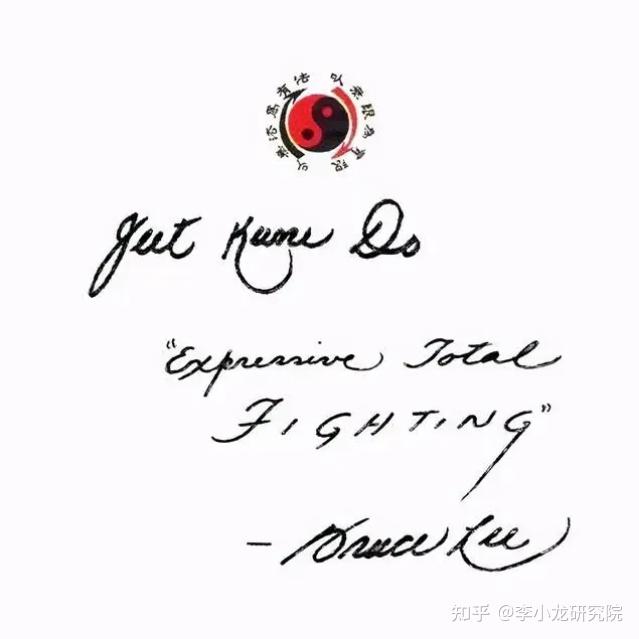 以無法為有法
以無限為有限
Jeet Kune Do
"Expressive Total
FIGHTING"
- Bruce Lee
知乎 @李小龙研究院